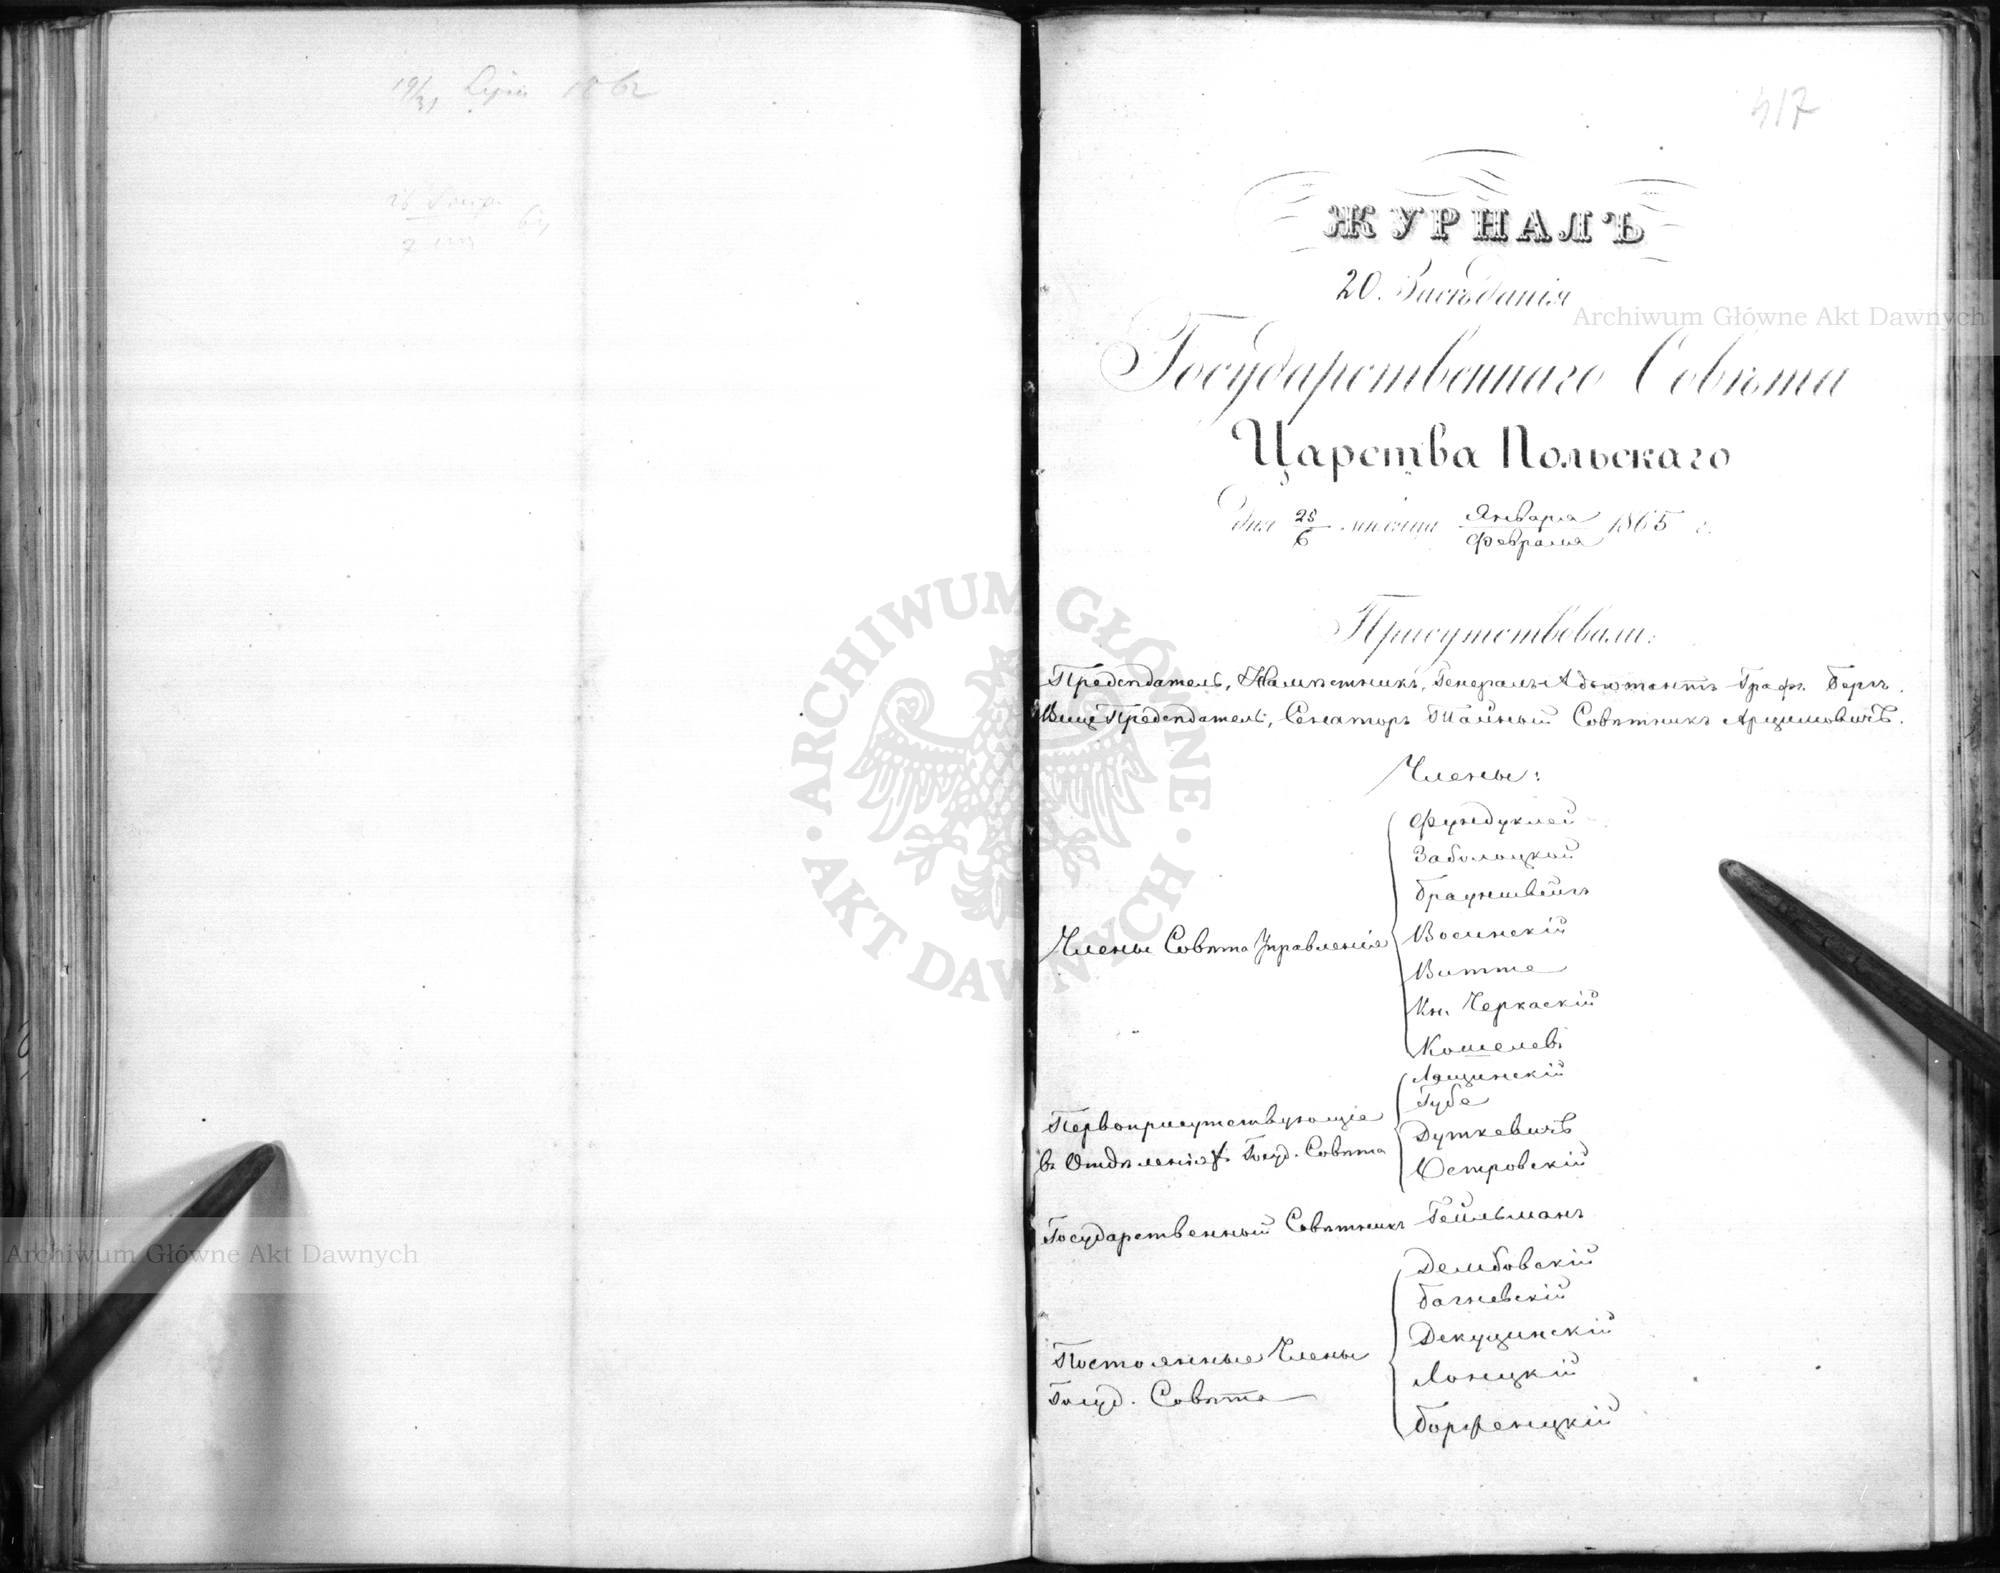 19/31 Lipca 1862
417
ЖУРНАЛЪ
20. Засѣданія
Государственнаго Совѣта
Царства Польскаго
Дня 25/6 мѣсяца Января/Февраля 1865 г.
Присутствовали:
Предсѣдатель, Намѣстникъ, Генералъ-Адъютантъ Графъ Бергъ.
Вице Предсѣдатель, Сенаторъ Тайный Совѣтникъ Арцимовичъ.
Члены:
Члены Совѣта Управленія
Фундуклей
Заболоцкой
Брауншвейгъ
Восинскій
Витте
Кн. Черкаскій
Кошелевъ
Первоприсутствующіе
въ Отдѣленіях Госуд. Совѣта
Лящинскій
Губе
Дуткевичъ
Островскій
Государственный Совѣтникъ Гейльманъ
Постоянные Члены
Госуд. Совѣта
Дембовскій
Багневскій
Декуцинскій
Лонцкій
Борженцкій
Archiwum Główne Akt Dawnych
Archiwum Główne Akt Dawnych
ARCHIWUM GŁÓWNE · AKT DAWNYCH ·